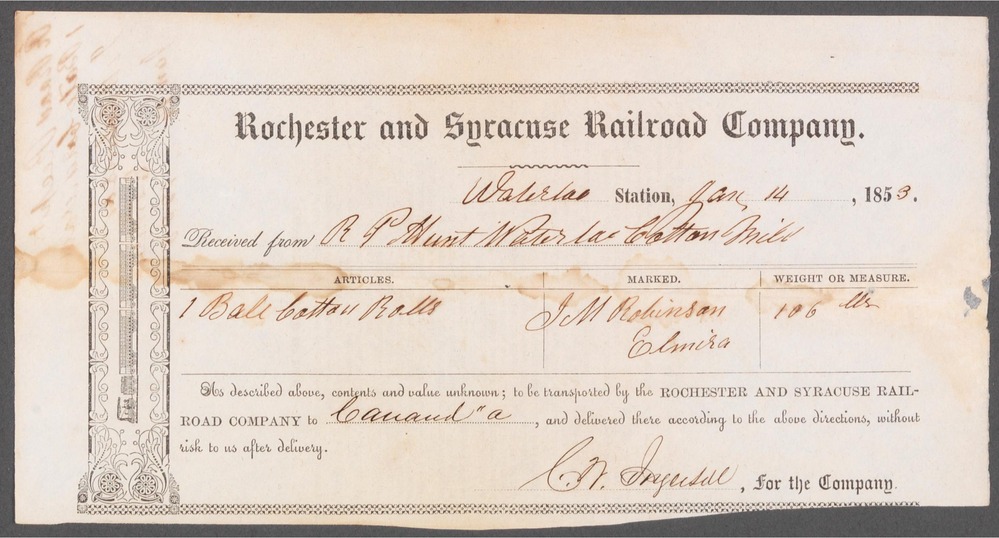 Rochester and Syracuse Railroad Company.
Waterloo Station, Jan, 14, 1853.
Received from R P Hunt Waterloo Cotton Mill
ARTICLES. MARKED. WEIGHT OR MEASURE.
1 Bale Cotton Rolls J M Robinson 106 lbs
Elmira
As described above, contents and value unknown; to be transported by the ROCHESTER AND SYRACUSE RAIL-
ROAD COMPANY to Canand"a, and delivered there according to the above directions, without
risk to us after delivery.
C. W. Ingersoll, For the Company.